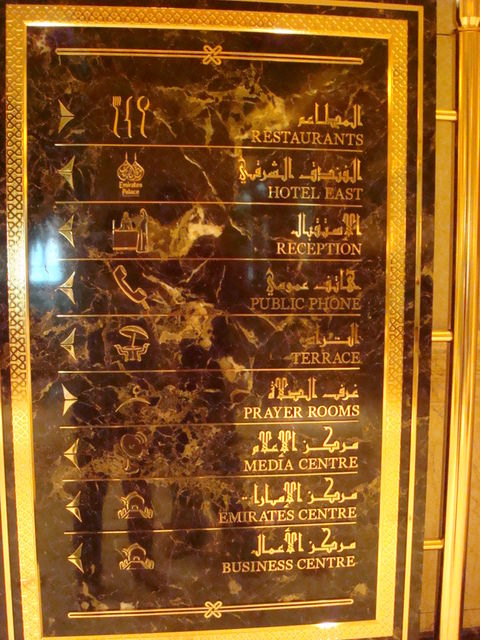 المطاعم
RESTAURANTS
Emirates
Palace
الفندق الشرقي
HOTEL EAST
الاستقبال
RECEPTION
هاتف عمومي
PUBLIC PHONE
التراس
TERRACE
غرف الصلاة
PRAYER ROOMS
مركز الاعلام
MEDIA CENTRE
مركز الامارات
EMIRATES CENTRE
مركز الأعمال
BUSINESS CENTRE